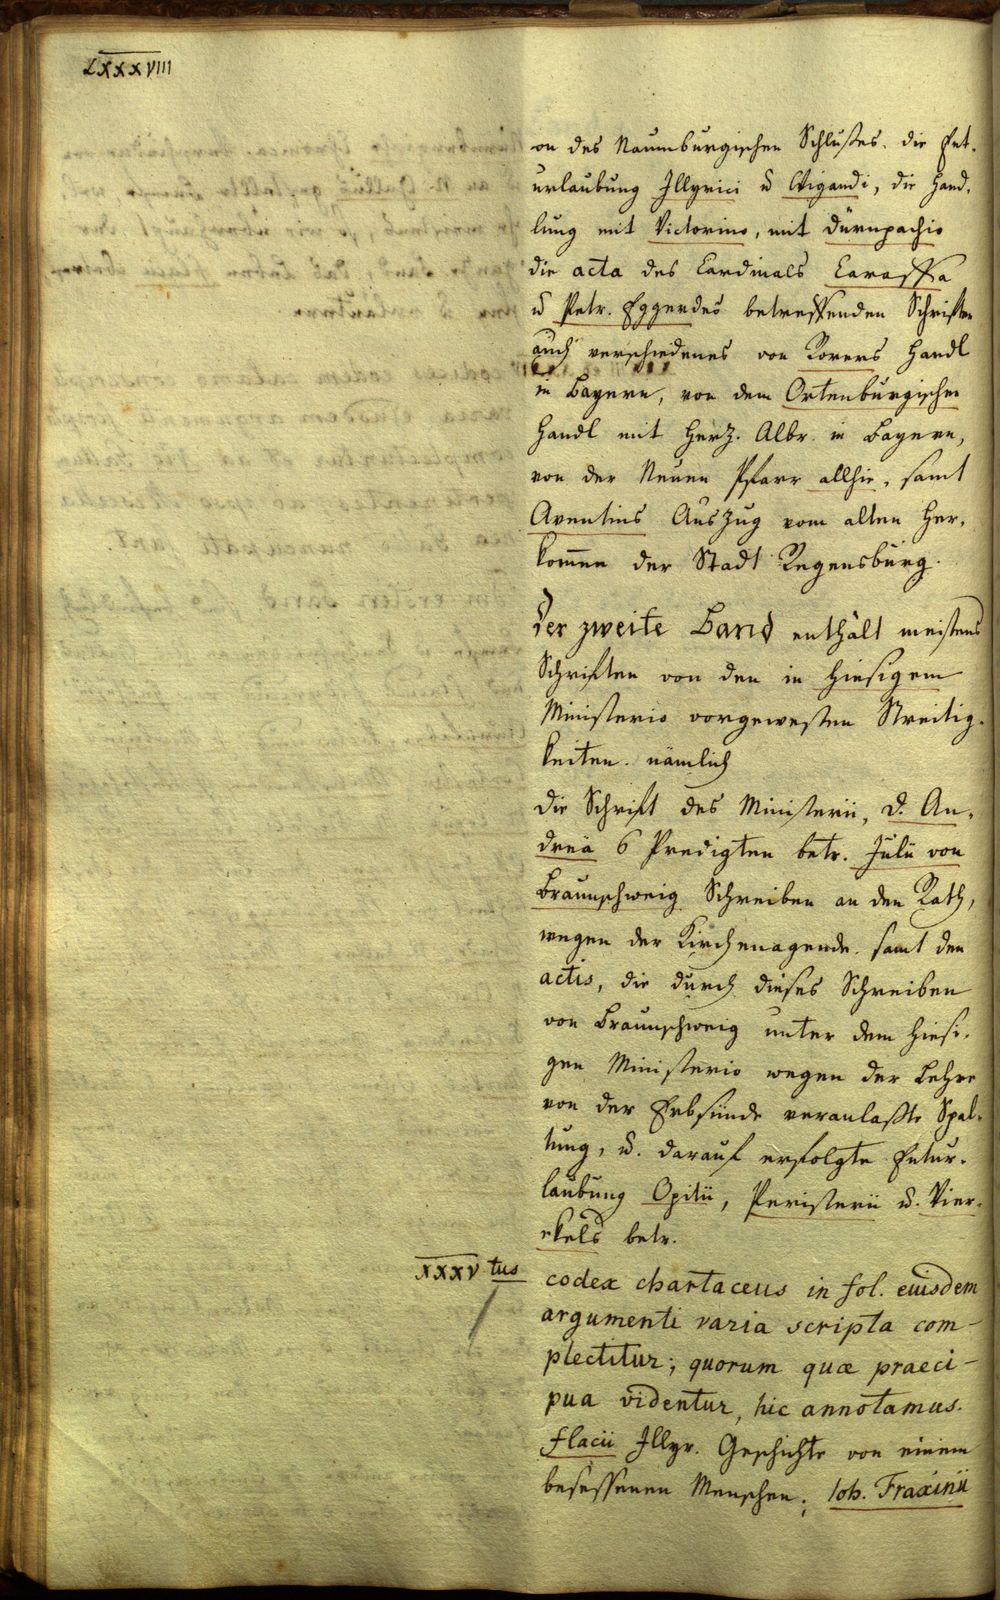 LXXXVIII
on des Naumburgischen Schlußes. die Ent-
urlaubung Illyrici u Wigandi, die Hand-
lung mit Victorino, mit Dürnpachio
die acta des Cardinals Caraffa
u Petr. Eggerdes betreffenden Schriften
auch verschiedenes von Rorers Handl
in Bayern, von dem Ortenburgischen
Handl mit Herz. Albr. in Bayern,
von der Neuen Pfarr allhie, samt
Aventins Auszug vom alten Her-
kom̅en der Stadt Regensburg.
Der zweite Band enthält meistens
Schriften von den in hiesigem
Ministerio vorgewesten Streitig-
keiten. nämlich
die Schrift des Ministerii, D. An-
dreä 6 Predigten betr. Julii von
Braunschweig Schreiben an den Rath,
wegen der Kirchenagende. samt den
actis, die durch dieses Schreiben
von Braunschweig unter dem hiesi-
gen Ministerio wegen der Lehre
von der Erbsünde veranlaßte Spal-
tung, u. darauf erfolgte Entur-
laubung Opitii, Peristerii u. Vier-
ekels betr.
XXXV tus
codex chartaceus in fol. eiusdem
argumenti varia scripta com-
plectitur; quorum quæ praeci-
pua videntur, hic annotamus.
Flacii Illyr. Geschichte von einem
besessenen Menschen; Ioh. Fraxinii